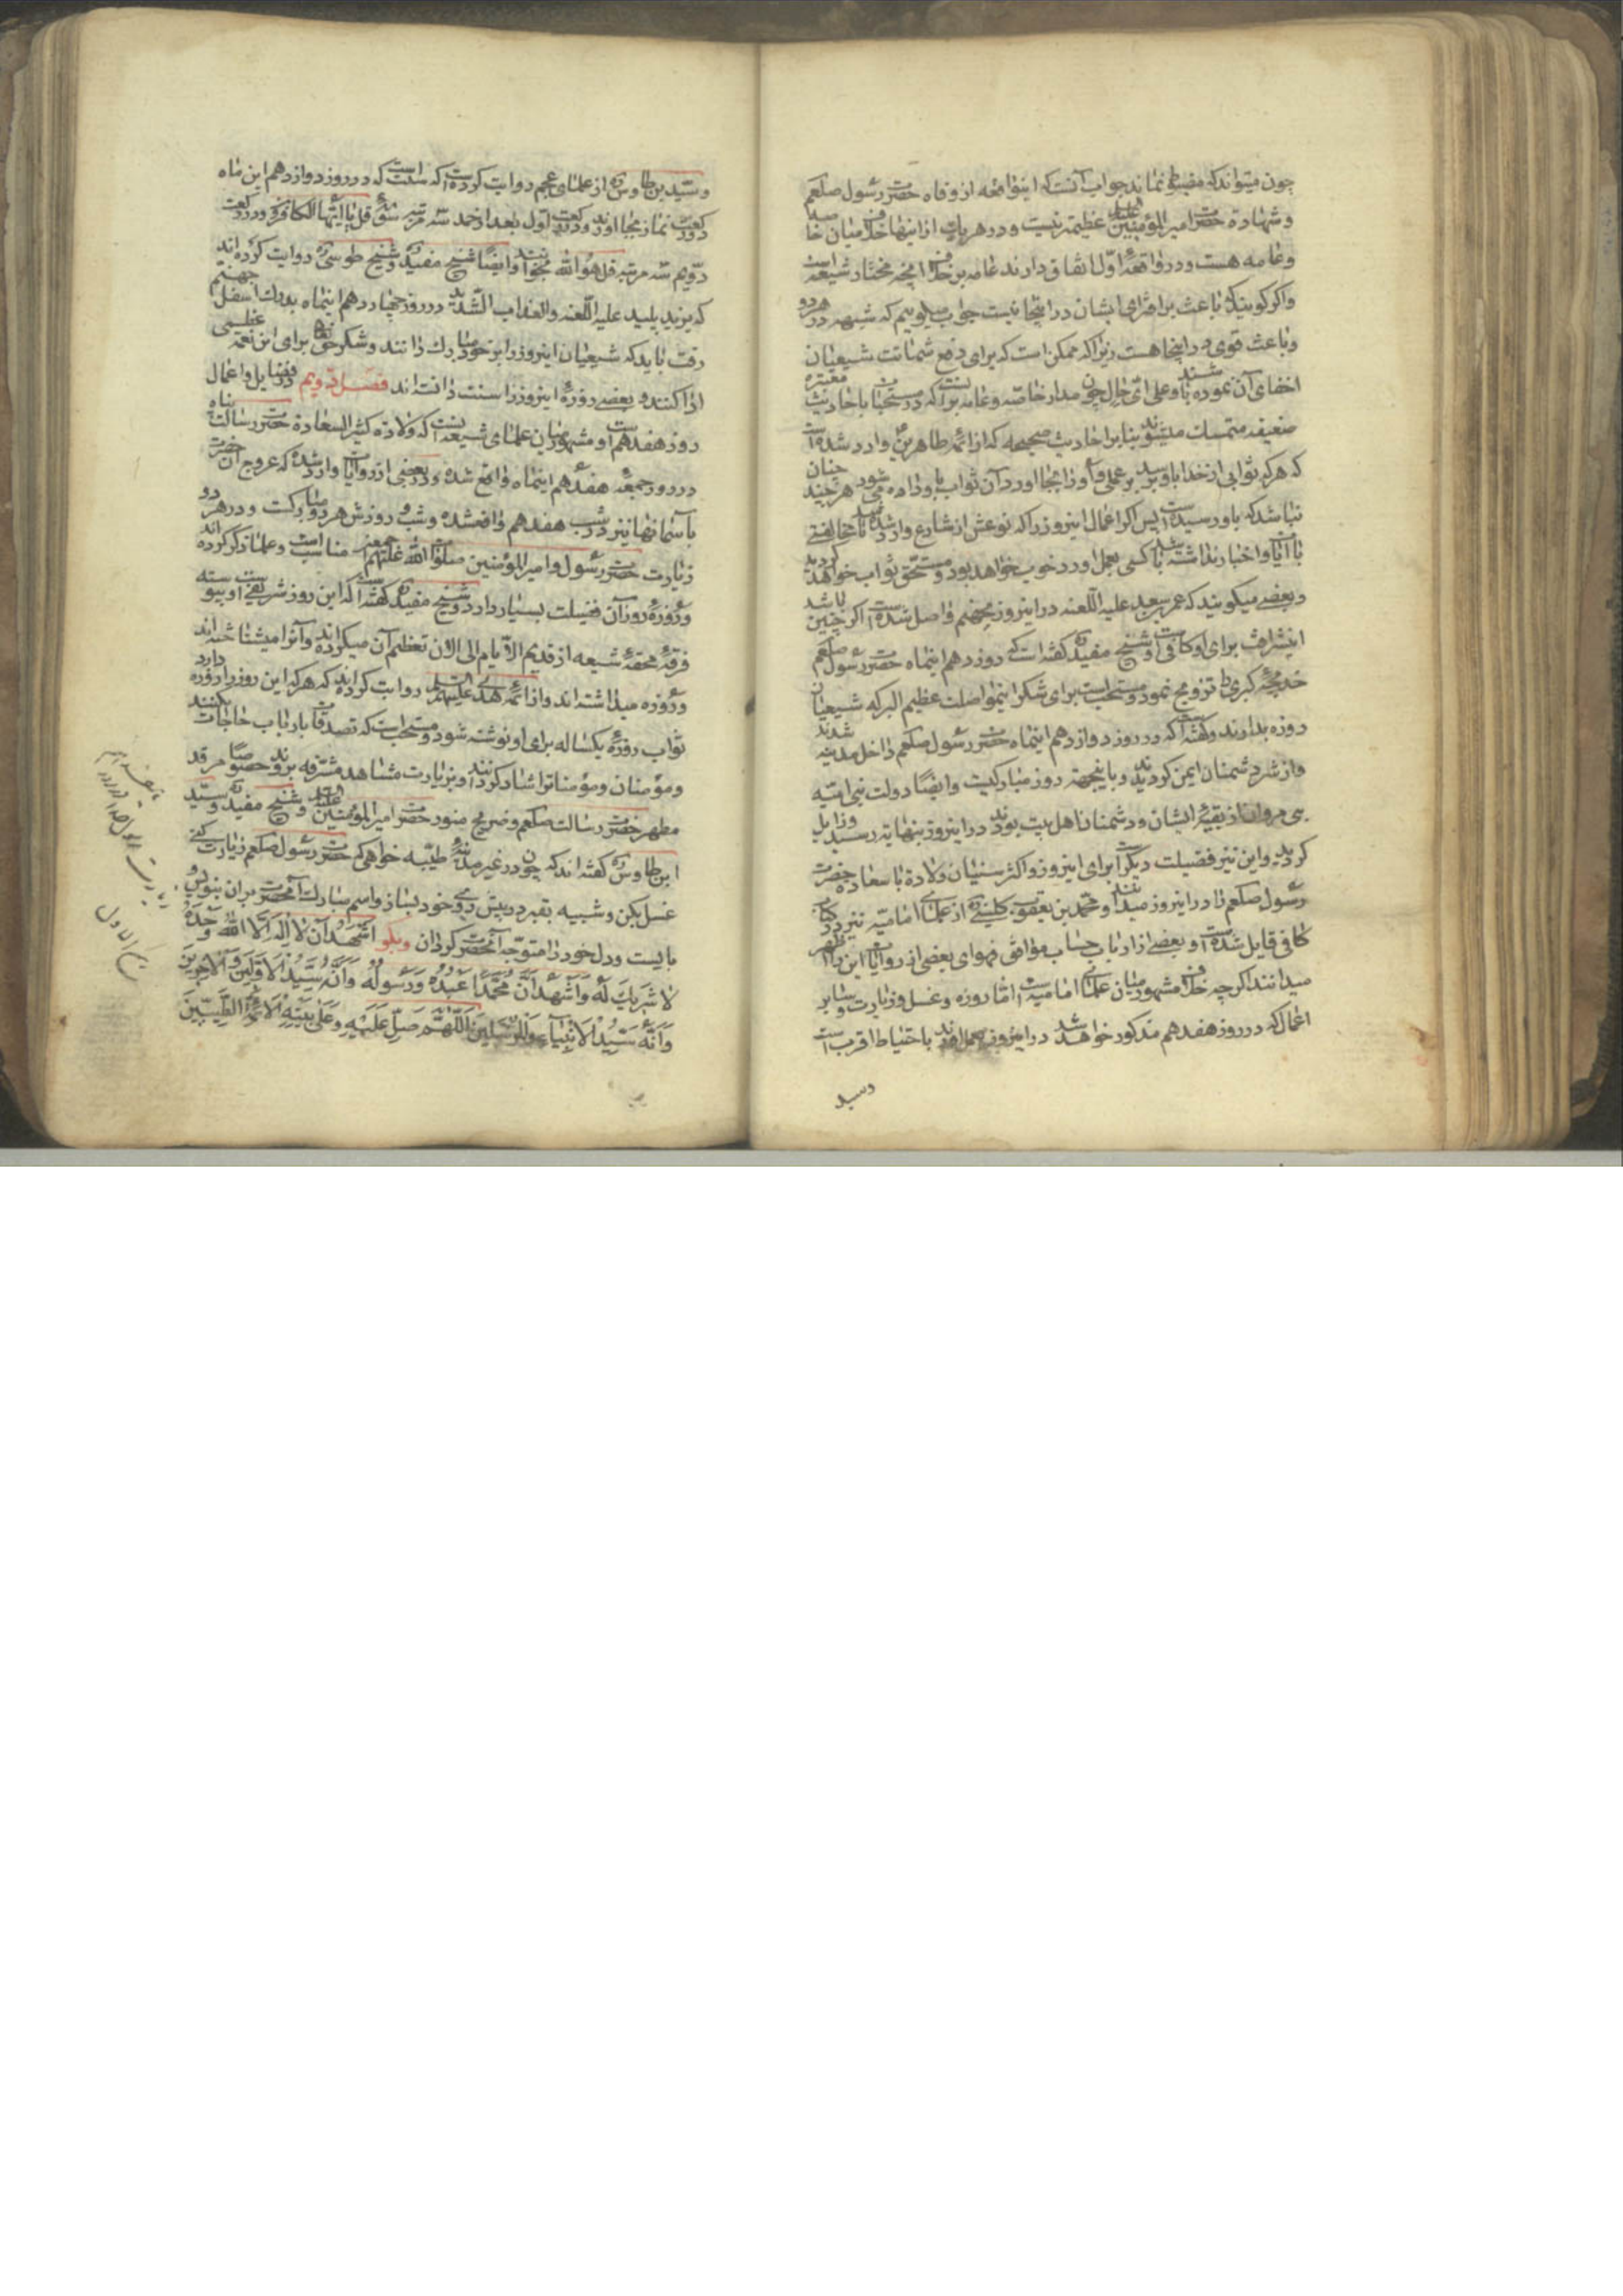 چون میتواند که مضبط نماند جواب آنست که اینواقعه از وفاه حضرت رسول صلعم
و شهادة حضرت امیر المؤمنین علیه السلام عظیمتر نیست و در هر یک از اینها خلاف میان خاصه
و عامه هست و در واقعهٔ اول اتفاق دارند عامه بر خلاف آنچه مختار شیعه است
و اگر گویند که باعث بر افترای ایشان در اینجا نیست جواب میگوییم که شبهه در هر دو
و باعث قوی در اینجا هست زیرا که ممکن است که برای دفع شماتت شیعیان
اخفای آن نموده باشند و علی ای حال چون مدار خاصه و عامه بر آنست که در مستحبات باحادیث
ضعیف متمسک میشوند بنا بر احادیث صحیحه که از ائمه طاهرین وارد شده است
که هر که ثوابی از خدا باو برسد بر عملی و او بجا آورد آن ثواب باو داده می شود هر چند چنان
نباشد که باو رسیده است پس اگر اعمال این روز را که نوعش از شارع وارد شده تا مخالفتی
با آیات و اخبار نداشته باشد کسی بعمل آورد خوب خواهد بود و مستحق ثواب خواهد گردید
و بعضی میگویند که عمر سعد علیه اللعنه در این روز بجهنم واصل شده است اگر چنین باشد
اینشرافت برای او کافی است و شیخ مفید گفته است که روز دهم اینماه حضرت رسول صلعم
خدیجهٔ کبری را تزویج نمود و مستحب است برای شکر اینمواصلت عظیم البرکه شیعیان
روزه بدارند و گفته است که در روز دوازدهم اینماه حضرت رسول صلعم داخل مدینه شدند
و از شر دشمنان ایمن گردیدند و باینجهت روز مبارکیست و ایضا دولت بنی امیه
بنی مروان از بقیهٔ ایشان و دشمنان اهل بیت بودند در این روز بنهایت رسید و زایل
گردید و این نیز فضیلت دیگر است برای این روز و اکثر سنیان ولادة با سعادة حضرت
رسول صلعم را در این روز میدانند و محمد بن یعقوب کلینی از علمای امامیه نیز در کتاب
کافی قایل شده است و بعضی از ارباب حساب موافق فحوای بعضی از روایات این را اظهر
میدانند اگر چه خلاف مشهور میان علمای امامیه است اما روزه و غسل و زیارت و سایر
اعمال که در روز هفدهم مذکور خواهد شد در این روز بعمل آورند باحتیاط اقرب است
وسید
و سید بن طاوس از علمای عجم روایت کرده است که سنت است که در روز دوازدهم این ماه
دو رکعت نماز بجا آورند و در رکعت اول بعد از حمد سه مرتبه سوره قل یا ایها الکافرون و در رکعت
دویم سه مرتبه قل هو الله بخوانند و ایضا شیخ مفید و شیخ طوسی روایت کرده اند
که یزید پلید علیه اللعنه و العذاب الشدید در روز چهاردهم اینماه بدرک اسفل جهنم
رفت باید که شیعیان این روز را بر خود مبارک دانند و شکر حق تعالی برای این نعمت عظیمی
ادا کنند و بعضی روزهٔ این روز را سنت دانسته اند فصل دویم در فضایل و اعمال
روز هفدهم است و مشهور میان علمای شیعه آنست که ولادة کثیر السعادة حضرت رسالت پناه
در روز جمعهٔ هفدهم اینماه واقع شده و در بعضی از روایات وارد شده که عروج آن حضرت
بآسمانها نیز در شب هفدهم واقعشده و شب و روزش هر دو مبارکست و در هر دو
زیارت حضرت رسول و امیر المؤمنین صلوات الله علیهم اجمعین مناسب است و علما ذکر کرده اند
و روزهٔ روز آن فضیلت بسیار دارد و شیخ مفید گفته است که این روز شریفی است و پیوسته
فرقهٔ محقهٔ شیعه از قدیم الایام الی الآن تعظیم آن میکرده اند و آنرا میشناخته اند
و روزه میداشته اند و از ائمه هدی علیهم السلام روایت کرده اند که هر که این روز را روزه دارد
ثواب روزهٔ یکساله برای او نوشته شود و مستحب است که تصدقات بارباب حاجات بکنند
و مؤمنان و مؤمناترا شاد گردانند و بزیارت مشاهد مشرفه بروند خصوصا مرقد
مطهر حضرت رسالت صلعم و ضریح منور حضرت امیر المؤمنین علیه السلام و شیخ مفید و سید
ابن طاوس گفته اند که چون در غیر مدینهٔ طیبه خواهی که حضرت رسول صلعم زیارت کنی
غسل بکن و شبیه بقبر در پیش روی خود بساز و اسم مبارک آنحضرت بر آن بنویس و
بایست و دل خود را متوجه آنحضرت گردان و بگو اَشْهَدُ اَنْ لا اِلهَ اِلَّا اللهُ وَحْدَهُ
لا شَرِيكَ لَهُ وَاَشْهَدُ اَنَّ مُحَمَّدًا عَبْدُهُ وَرَسُولُهُ وَاَنَّهُ سَيِّدُ الْاَوَّلِينَ وَالْاٰخِرِينَ
وَاَنَّهُ سَيِّدُ الْاَنْبِيَاءِ وَالْمُرْسَلِينَ اَللّٰهُمَّ صَلِّ عَلَيْهِ وَعَلٰى اَهْلِ بَيْتِهِ الْاَئِمَّةِ الطَّيِّبِينَ